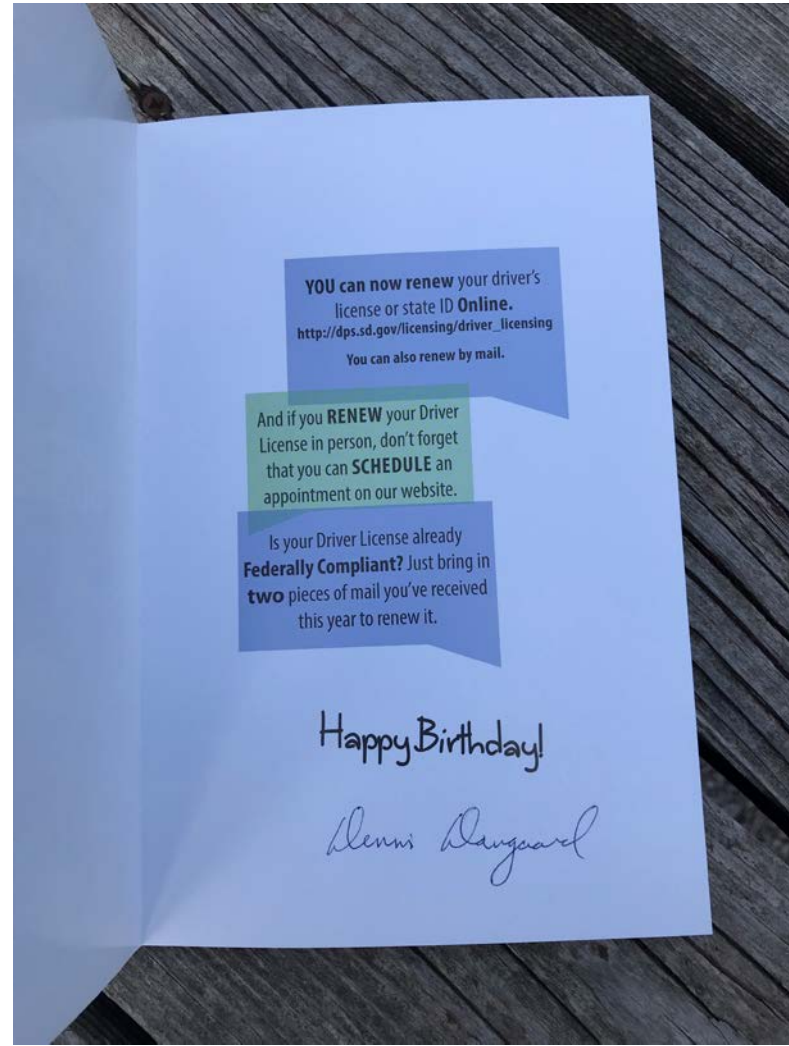 YOU can now renew your driver's
license or state ID Online.
http://dps.sd.gov/licensing/driver_licensing
You can also renew by mail.
And if you RENEW your Driver
License in person, don't forget
that you can SCHEDULE an
appointment on our website.
Is your Driver License already
Federally Compliant? Just bring in
two pieces of mail you've received
this year to renew it.
Happy Birthday!
Dennis Daugaard